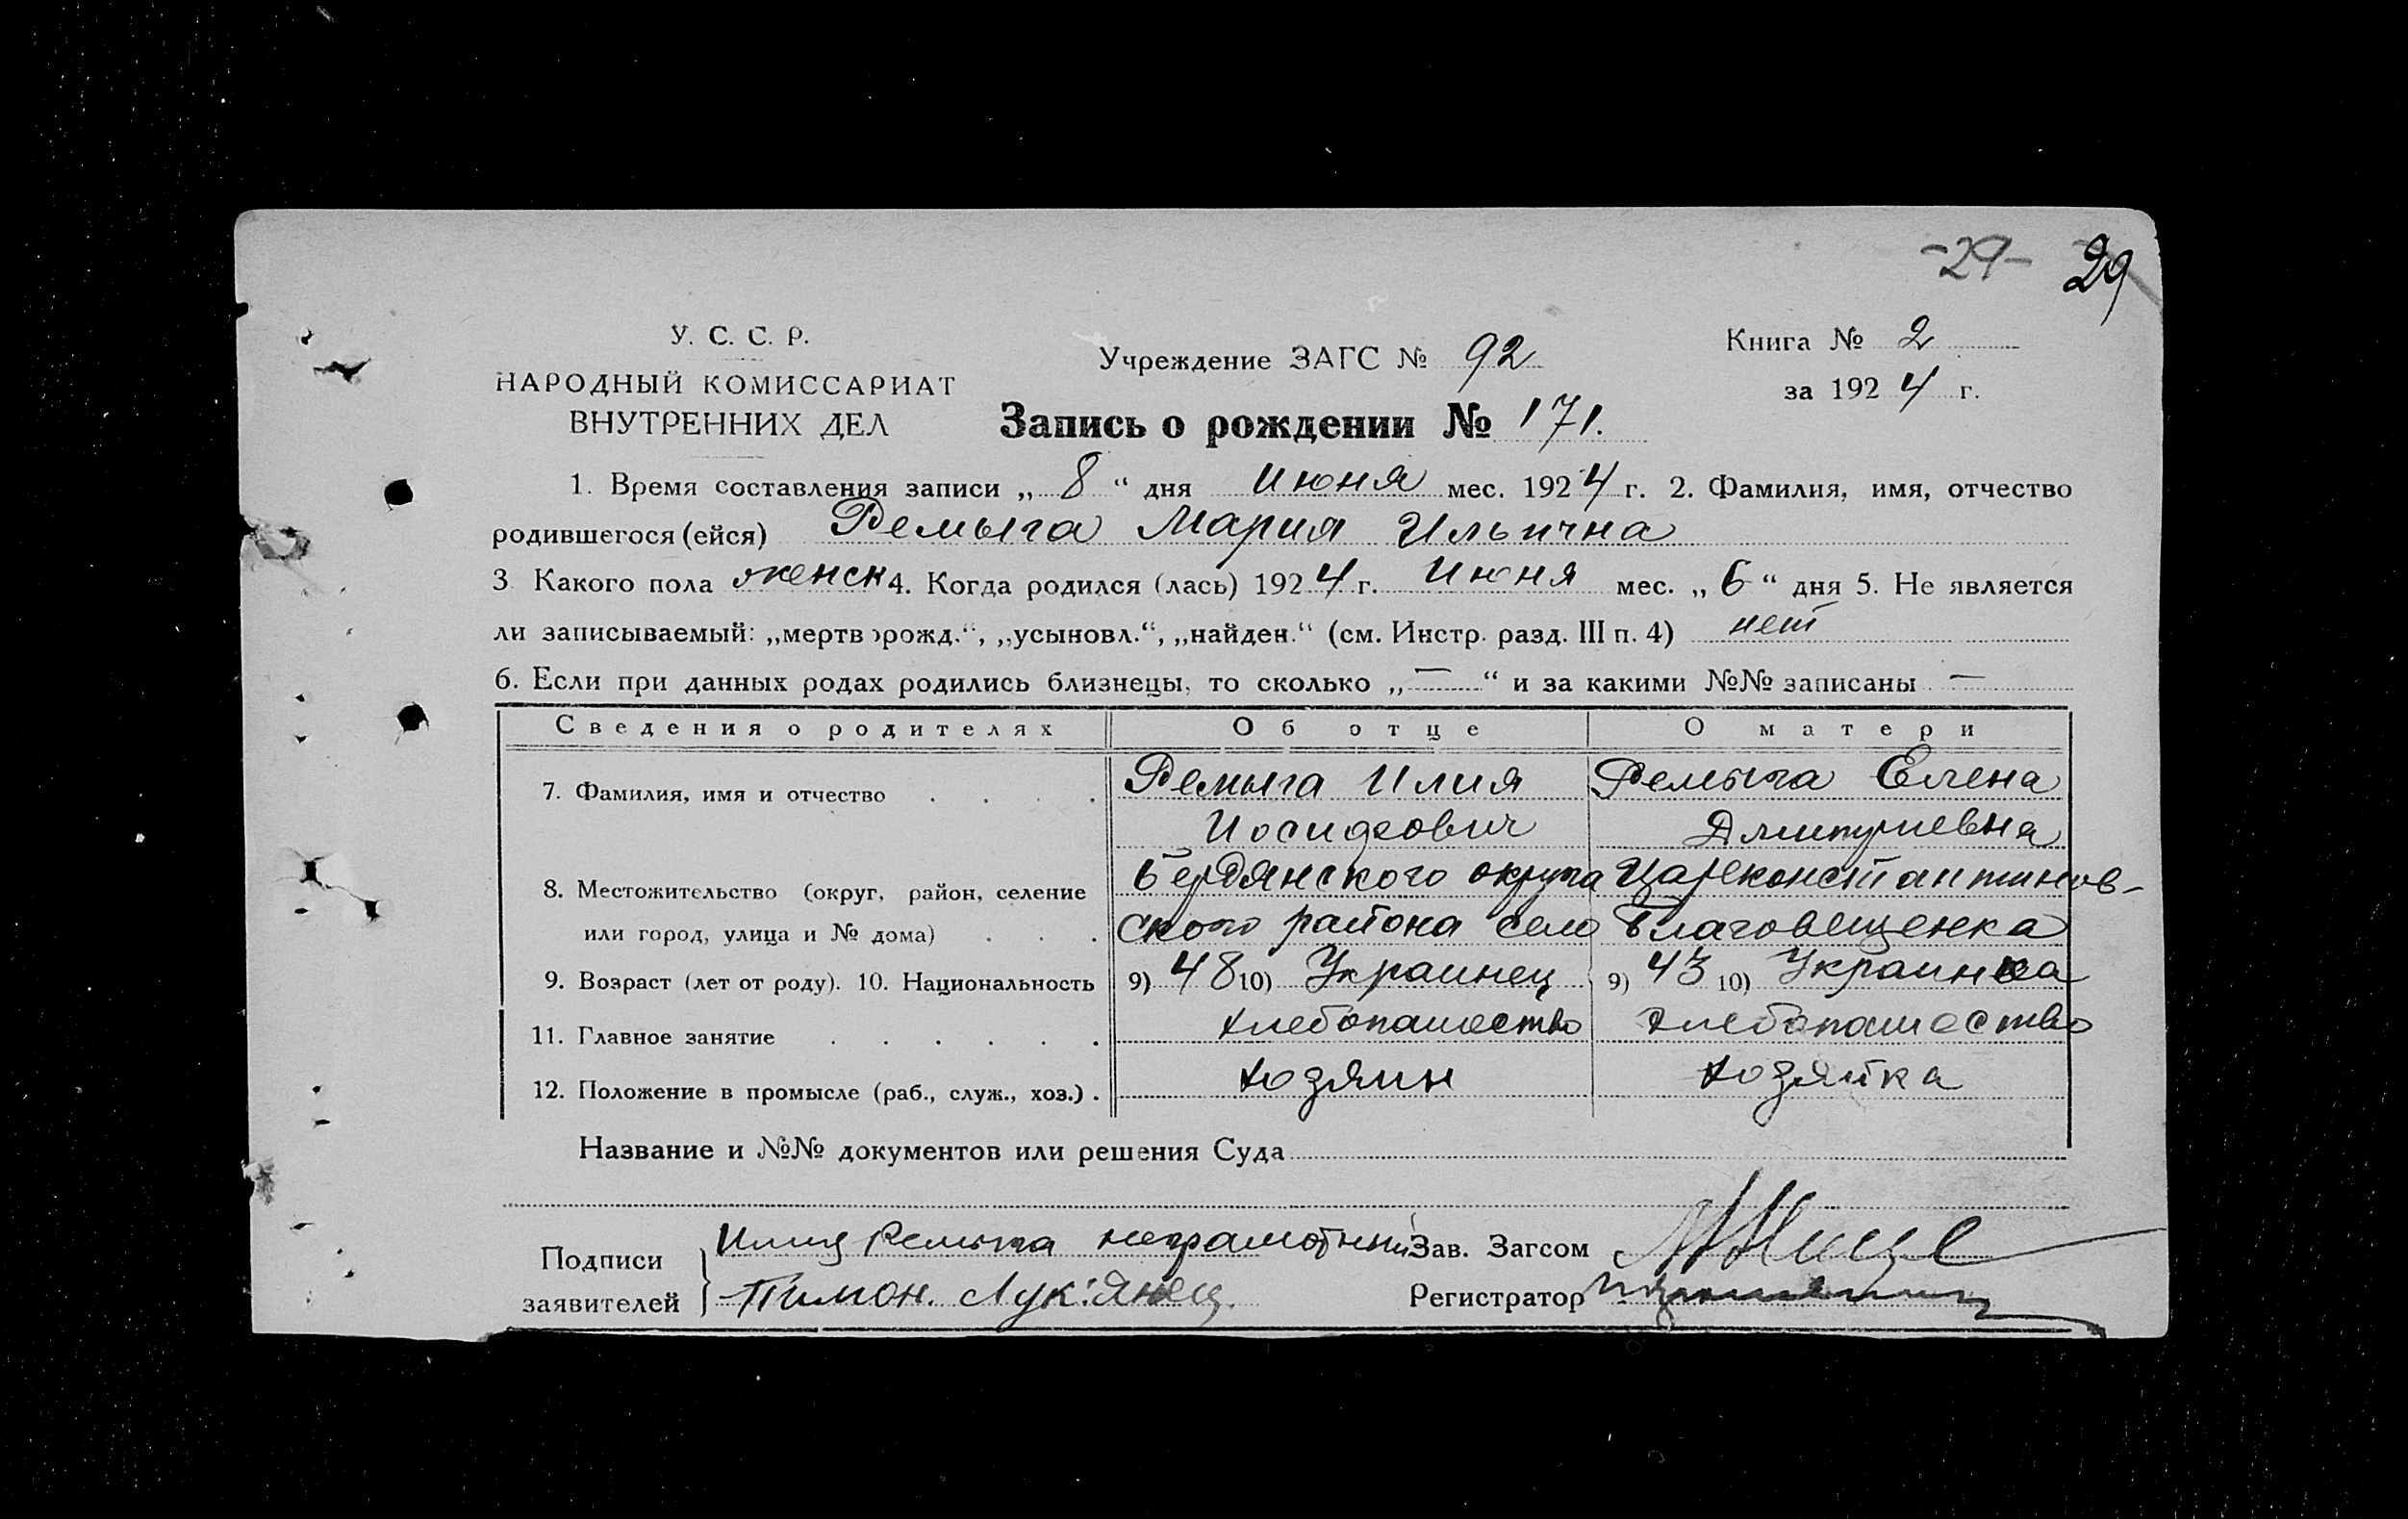 -29- 29
У. С. С. Р.
НАРОДНЫЙ КОМИССАРИАТ
ВНУТРЕННИХ ДЕЛ
Учреждение ЗАГС № 92
Книга № 2
за 1924 г.
Запись о рождении № 171.
1. Время составления записи „ 8 “ дня Июня мес. 1924 г. 2. Фамилия, имя, отчество
родившегося (ейся) Ремыга Мария Ильична
3 Какого пола женск 4. Когда родился (лась) 1924 г. Июня мес. „ 6 “ дня 5. Не является
ли записываемый: „мертворожд.“, „усыновл.“, „найден.“ (см. Инстр. разд. III п. 4) нет
6. Если при данных родах родились близнецы, то сколько „ — “ и за какими №№ записаны —
Сведения о родителях Об отце О матери
7. Фамилия, имя и отчество . . . . Ремыга Илия Ремыга Елена
Иосифович Дмитриевна
8. Местожительство (округ, район, селение Бердянского округа Цареконстантинов-
или город, улица и № дома) . . . ского района село Благовещенка
9. Возраст (лет от роду). 10. Национальность 9) 48 10) Украинец 9) 43 10) Украинка
11. Главное занятие . . . . . . хлебопашество хлебопашество
12. Положение в промысле (раб., служ., хоз.) . хозяин хозяйка
Название и №№ документов или решения Суда
Подписи заявителей
Илия Ремыга неграмотный
Тимон. Лук'янец.
Зав. Загсом
Регистратор